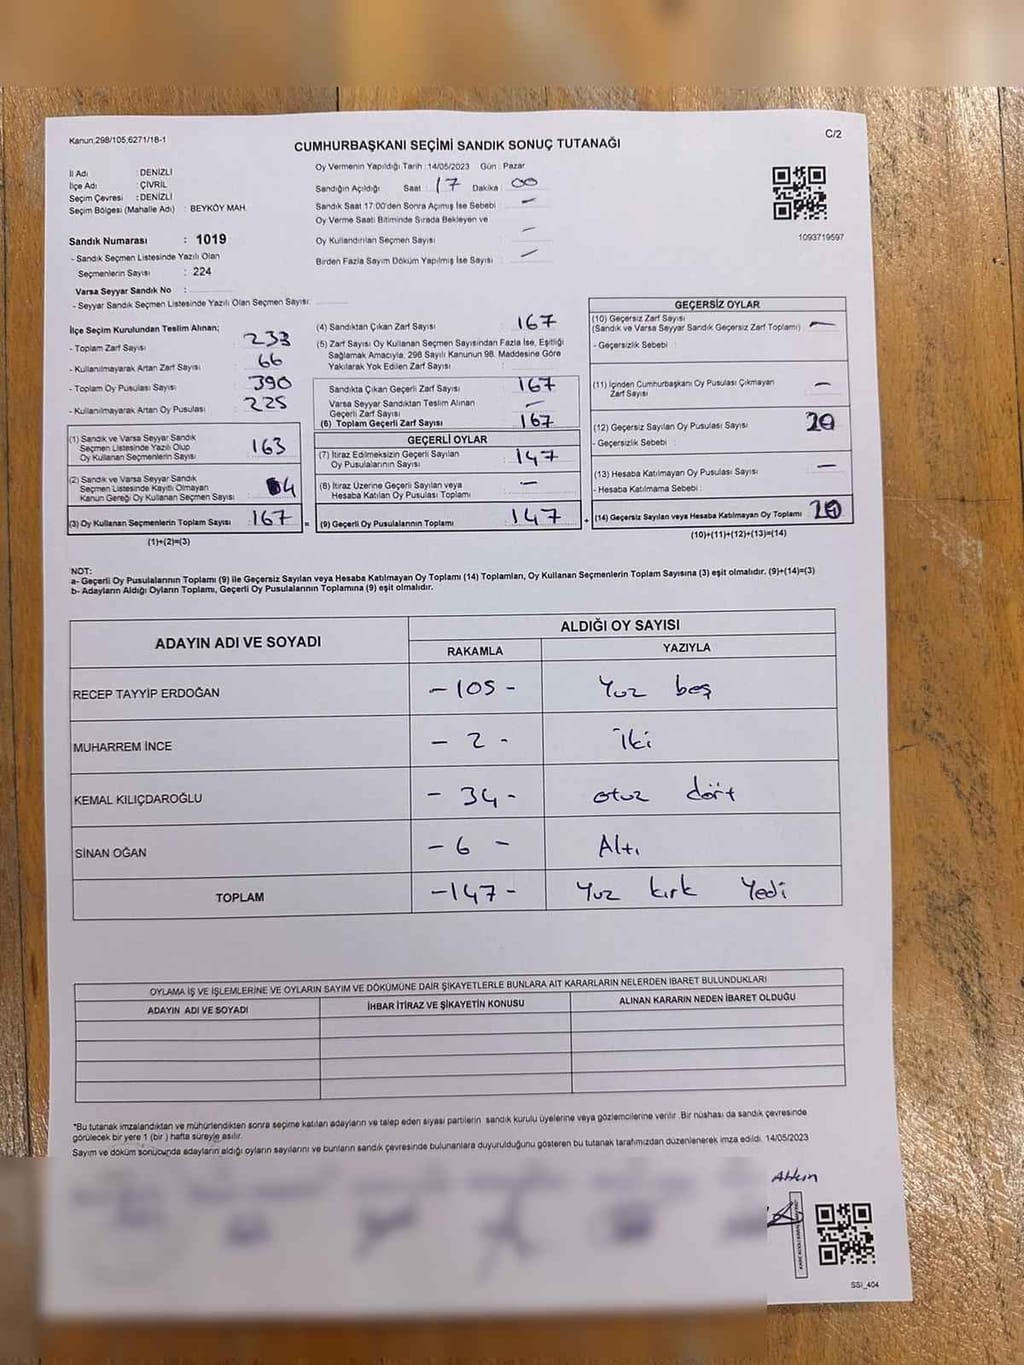 Kanun;298/105,6271/18-1
C/2
CUMHURBAŞKANI SEÇİMİ SANDIK SONUÇ TUTANAĞI
İl Adı : DENİZLİ
İlçe Adı : ÇİVRİL
Seçim Çevresi : DENİZLİ
Seçim Bölgesi (Mahalle Adı) : BEYKÖY MAH.
Sandık Numarası : 1019
- Sandık Seçmen Listesinde Yazılı Olan
Seçmenlerin Sayısı : 224
Varsa Seyyar Sandık No :
- Seyyar Sandık Seçmen Listesinde Yazılı Olan Seçmen Sayısı:
Oy Vermenin Yapıldığı Tarih : 14/05/2023 Gün : Pazar
Sandığın Açıldığı Saat : 17 Dakika : 00
Sandık Saat 17:00'den Sonra Açımış İse Sebebi : –
Oy Verme Saati Bitiminde Sırada Bekleyen ve
Oy Kullandırılan Seçmen Sayısı : –
Birden Fazla Sayım Döküm Yapılmış İse Sayısı : –
1093719597
İlçe Seçim Kurulundan Teslim Alınan;
- Toplam Zarf Sayısı : 233
- Kullanılmayarak Artan Zarf Sayısı : 66
- Toplam Oy Pusulası Sayısı : 390
- Kullanılmayarak Artan Oy Pusulası : 225
(1) Sandık ve Varsa Seyyar Sandık
Seçmen Listesinde Yazılı Olup
Oy Kullanan Seçmenlerin Sayısı : 163
(2) Sandık ve Varsa Seyyar Sandık
Seçmen Listesinde Kayıtlı Olmayan
Kanun Gereği Oy Kullanan Seçmen Sayısı : 4
(3) Oy Kullanan Seçmenlerin Toplam Sayısı : 167
(1)+(2)=(3)
(4) Sandıktan Çıkan Zarf Sayısı : 167
(5) Zarf Sayısı Oy Kullanan Seçmen Sayısından Fazla İse, Eşitliği
Sağlamak Amacıyla, 298 Sayılı Kanunun 98. Maddesine Göre
Yakılarak Yok Edilen Zarf Sayısı :
Sandıkta Çıkan Geçerli Zarf Sayısı : 167
Varsa Seyyar Sandıktan Teslim Alınan
Geçerli Zarf Sayısı : –
(6) Toplam Geçerli Zarf Sayısı : 167
GEÇERLİ OYLAR
(7) İtiraz Edilmeksizin Geçerli Sayılan
Oy Pusulalarının Sayısı : 147
(8) İtiraz Üzerine Geçerli Sayılan veya
Hesaba Katılan Oy Pusulası Toplamı : –
= (9) Geçerli Oy Pusulalarının Toplamı : 147
GEÇERSİZ OYLAR
(10) Geçersiz Zarf Sayısı
(Sandık ve Varsa Seyyar Sandık Geçersiz Zarf Toplamı) : –
- Geçersizlik Sebebi :
(11) İçinden Cumhurbaşkanı Oy Pusulası Çıkmayan
Zarf Sayısı : –
(12) Geçersiz Sayılan Oy Pusulası Sayısı : 20
- Geçersizlik Sebebi :
(13) Hesaba Katılmayan Oy Pusulası Sayısı : –
- Hesaba Katılmama Sebebi :
+ (14) Geçersiz Sayılan veya Hesaba Katılmayan Oy Toplamı : 20
(10)+(11)+(12)+(13)=(14)
NOT:
a- Geçerli Oy Pusulalarının Toplamı (9) ile Geçersiz Sayılan veya Hesaba Katılmayan Oy Toplamı (14) Toplamları, Oy Kullanan Seçmenlerin Toplam Sayısına (3) eşit olmalıdır. (9)+(14)=(3)
b- Adayların Aldığı Oyların Toplamı, Geçerli Oy Pusulalarının Toplamına (9) eşit olmalıdır.
ADAYIN ADI VE SOYADI
ALDIĞI OY SAYISI
RAKAMLA YAZIYLA
RECEP TAYYİP ERDOĞAN – 105 – Yüz beş
MUHARREM İNCE – 2 – İki
KEMAL KILIÇDAROĞLU – 34 – otuz dört
SİNAN OĞAN – 6 – Altı
TOPLAM – 147 – Yüz kırk Yedi
OYLAMA İŞ VE İŞLEMLERİNE VE OYLARIN SAYIM VE DÖKÜMÜNE DAİR ŞİKAYETLERLE BUNLARA AİT KARARLARIN NELERDEN İBARET BULUNDUKLARI
ADAYIN ADI VE SOYADI İHBAR İTİRAZ VE ŞİKAYETİN KONUSU ALINAN KARARIN NEDEN İBARET OLDUĞU
*Bu tutanak imzalandıktan ve mühürlendikten sonra seçime katılan adayların ve talep eden siyasi partilerin sandık kurulu üyelerine veya gözlemcilerine verilir .Bir nüshası da sandık çevresinde
görülecek bir yere 1 (bir ) hafta süreyle asılır.
Sayım ve döküm sonucunda adayların aldığı oyların sayılarını ve bunların sandık çevresinde bulunanlara duyurulduğunu gösteren bu tutanak tarafımızdan düzenlenerek imza edildi. 14/05/2023
SSI_404